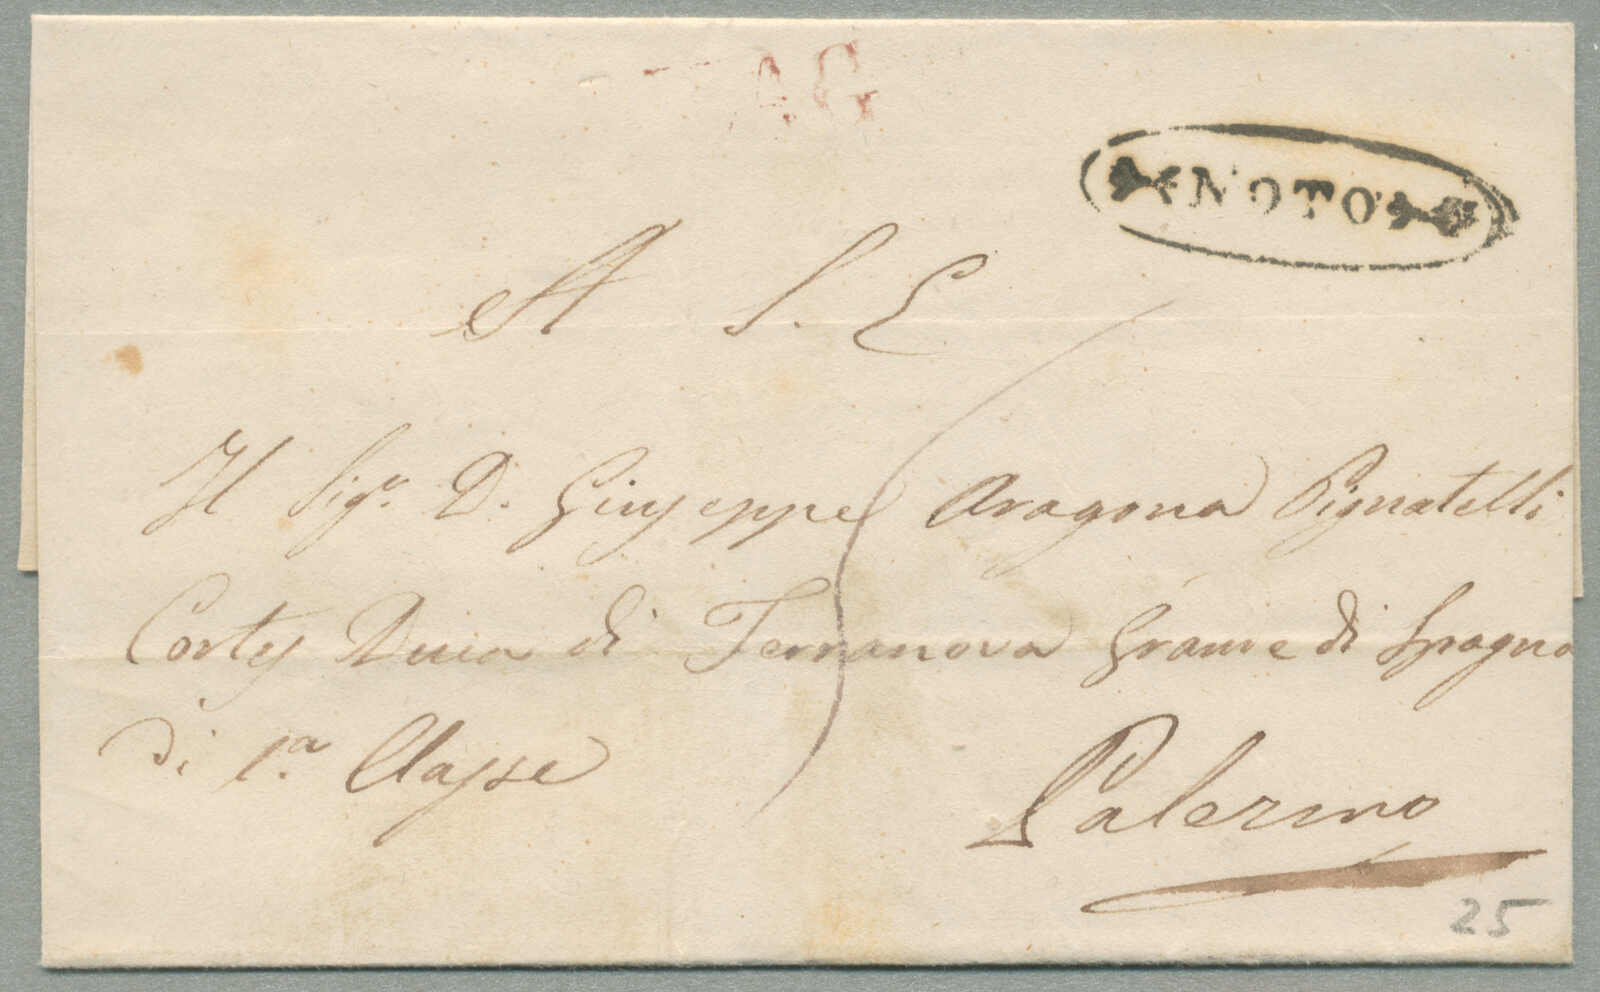 AG
NOTO
A S. E
Il Sigr. D. Giuseppe Aragona Pignatelli
Cortes Duca di Terranova Grande di Spagna
di 1.a Classe
Palermo
25